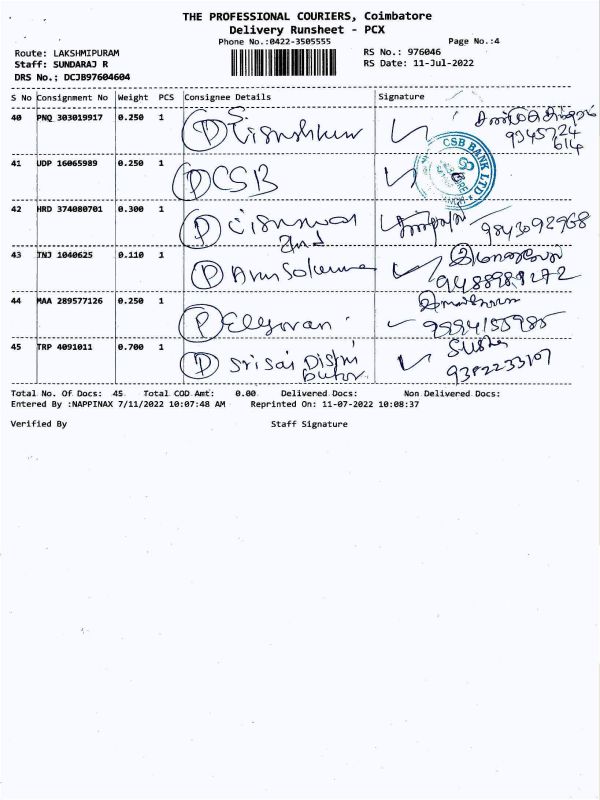 THE PROFESSIONAL COURIERS, Coimbatore
Delivery Runsheet - PCX
Phone No.:0422-3505555
Page No.:4
Route: LAKSHMIPURAM
RS No.: 976046
Staff: SUNDARAJ R
RS Date: 11-Jul-2022
DRS No.: DCJB97604604
S No Consignment No Weight PCS Consignee Details Signature
40 PNQ 303019917 0.250 1
9345724
614
41 UDP 16065989 0.250 1 CSB
CSB BANK LTD
42 HRD 374080701 0.300 1
9843092968
43 TNJ 1040625 0.110 1
9488989272
44 MAA 289577126 0.250 1
9994155985
45 TRP 4091011 0.700 1 Srisai Distri
butor.
9382233107
Total No. Of Docs: 45 Total COD Amt: 0.00 Delivered Docs: Non Delivered Docs:
Entered By :NAPPINAX 7/11/2022 10:07:48 AM Reprinted On: 11-07-2022 10:08:37
Verified By Staff Signature